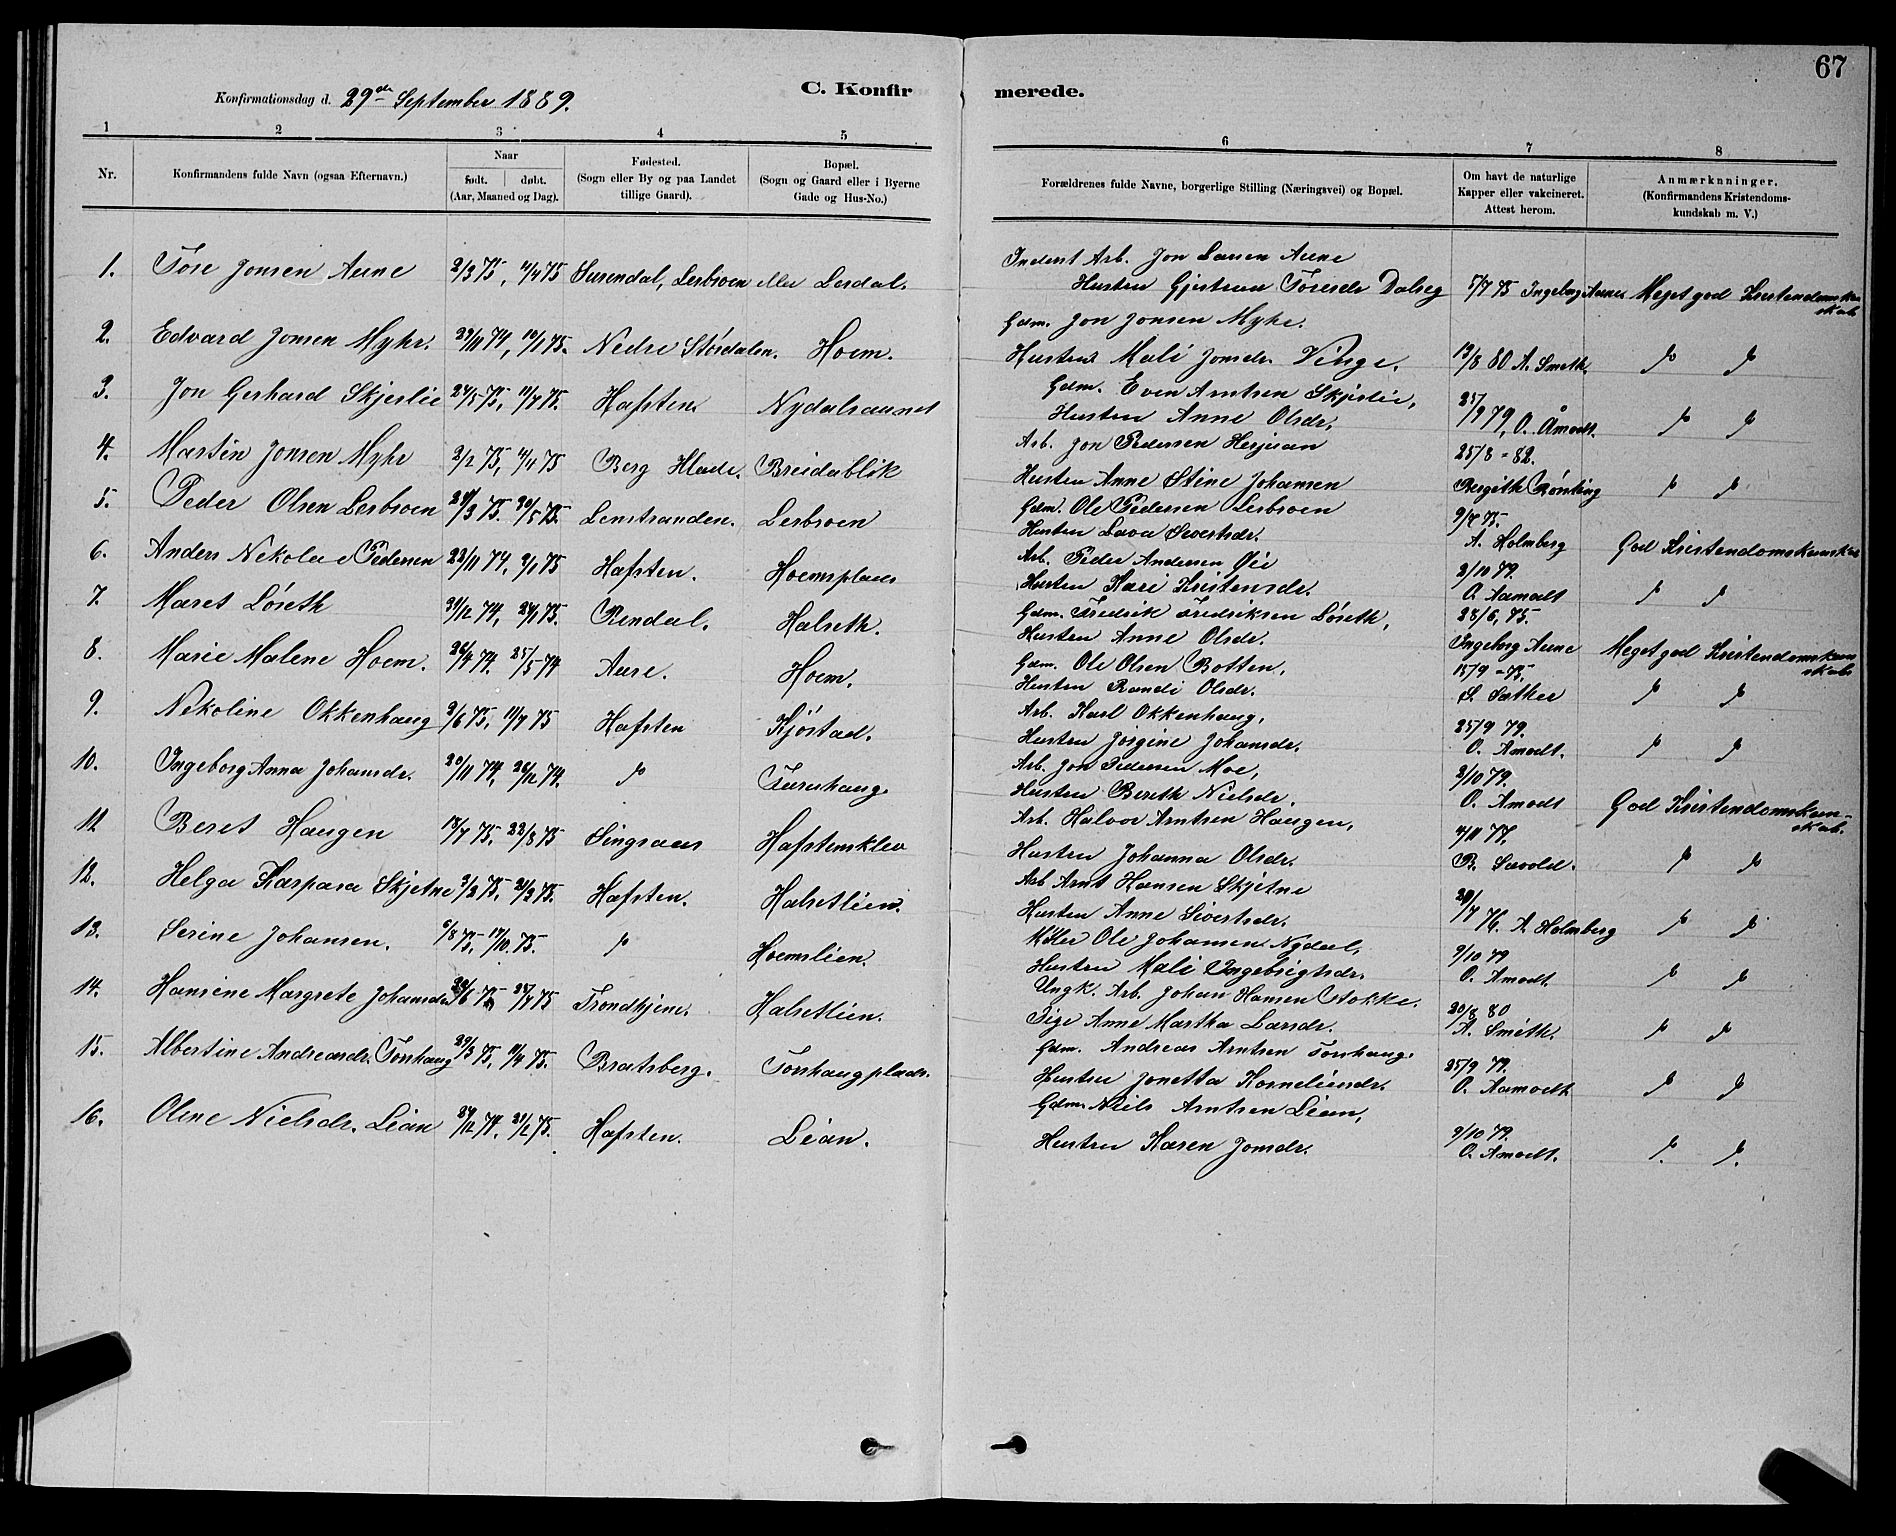 67
Konfirmationsdag d. 29de September 1889.
C. Konfirmerede.
1 2 3 4 5 6 7 8
Nr.
Konfirmandens fulde Navn (ogsaa Efternavn.)
Naar
født. døbt.
(Aar, Maaned og Dag).
Fødested.
(Sogn eller By og paa Landet
tillige Gaard).
Bopæl.
(Sogn og Gaard eller i Byerne
Gade og Hus-No.)
Forældrenes fulde Navne, borgerlige Stilling (Næringsvei) og Bopæl.
Om havt de naturlige
Kapper eller vakcineret.
Attest herom.
Anmærknninger.
(Konfirmandens Kristendoms-
kundskab m. V.)
1. Tore Jonsen Aune 2/3 75, 11/4 75 Surendal, Lerbroen eller Lerdal.
Inderst Arb. Jon Larsen Aune
Hustru Gjertrud Toresdr Dalseg 5/7 75 Ingeborg Aune Meget god Kristendomskundskab
2. Edvard Jonsen Myhr. 29/11 74, 10/1 75. Nedre Størdalen. Hoem.
Gdm. Jon Jonsen Myhr.
Hustru Mali Jonsdr. Vinge. 13/8 80 A. Smeth. " "
3. Jon Gerhard Skjerlie 24/5 75, 11/7 75. Hafsten. Nydalsaunet
Gdm. Even Arntsen Skjerlie,
Hustru Anne Olsdr, 25/9 79, O. Åmodt. " "
4. Martin Jonsen Myhr 2/2 75, 11/4 75 Berg Hlade. Breidablik
Arb. Jon Pedersen Herjuan 25/8 = 82.
Hustru Anne Stine Johansen Bergith Rønting " "
5. Peder Olsen Lerbroen 29/3 75. 30/5 75. Lenstranden. Lerbroen
Gdm. Ole Pedersen Lerbroen 9/7 75.
Hustru Lava Sivertsdr. A. Holmberg God Kristendomskundskab
6. Anders Nekolai Pedersen 22/11 74, 3/1 75 Hafsten. Hoemsplads
Arb. Peder Andersen Øie 2/10 79.
Hustru Kari Kristensdr. O. Aamodt " "
7. Maret Løseth 31/12 74, 24/1 75. Rendal. Halseth.
Gdm. Fredrik Fredriksen Løseth, 28/6, 75.
Hustru Anne Olsdr. Ingeborg Aune Meget god Kristendomskundskab
8. Marie Malene Hoem. 26/4 74. 25/5 74 Aure. Hoem.
Gdm. Ole Olsen Botten, 15/9 = 75.
Hustru Randi Olsdr. S. Sæther " "
9. Nekoline Okkenhaug 2/6 75, 11/7 75 Hafsten Kjøstad.
Arb. Karl Okkenhaug, 25/9 79.
Hustru Jørgine Johansdr. O. Amodt. " "
10. Ingeborg Anna Johansdr. 20/11 74, 26/12 74. " Furuhaug.
Arb. Jon Pedersen Moe, 2/10 79.
Hustru Bereth Nielsdr. O. Amodt God Kristendomskundskab.
11. Beret Haugen 18/7 75. 22/8 75 Singsaas Hafstenklev
Arb. Halvor Arntsen Haugen, 4/11 77.
Hustru Johanna Olsdr. B. Savold. " "
12. Helga Kaspara Skjetne 3/2 75. 21/3 75. Hafsten. Halsetlien.
Arb Arnt Hansen Skjetne
Hustru Anne Sivertsdr. 20/7 76. A. Holmberg " "
13. Serine Johansen. 6/8 75, 17/10. 75. " Hoemslien.
Ole Johansen Nydal, 9/10 79
Hustru Mali Ingebrigtsdr. O. Amodt. " "
14. Hansine Margrete Johansdr 24/6 75 25/7 75 Trondhjem. Halsetlien.
Ungk. Arb. Johan Hansen Stokke. 20/8 80
Pige Anne Martha Larsdr. A. Smith. " "
15. Albertine Andreasdr. Torshaug 29/3 75, 11/4 75. Bratsberg. Torshaugplads.
Gdm. Andreas Arntsen Torshaug. 25/9 79.
Hustru Jonetta Kornelinsdr. O. Aamodt " "
16. Oline Nielsdr. Lian 24/12 74, 21/2 75. Hafsten. Lian.
Gdm. Niels Arntsen Lian, 9/10 79.
Hustru Karen Jonsdr. O. Amodt. " "